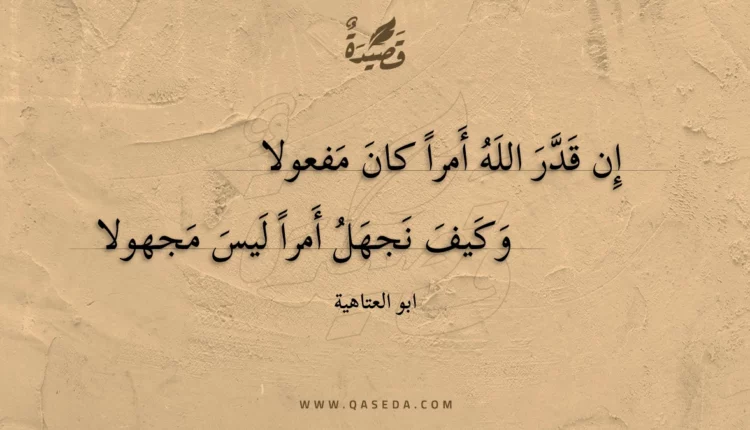 قَصيدَةٌ
إِن قَدَّرَ اللَهُ أَمراً كانَ مَفعولا
وَكَيفَ نَجهَلُ أَمراً لَيسَ مَجهولا
ابو العتاهية
WWW.QASEDA.COM